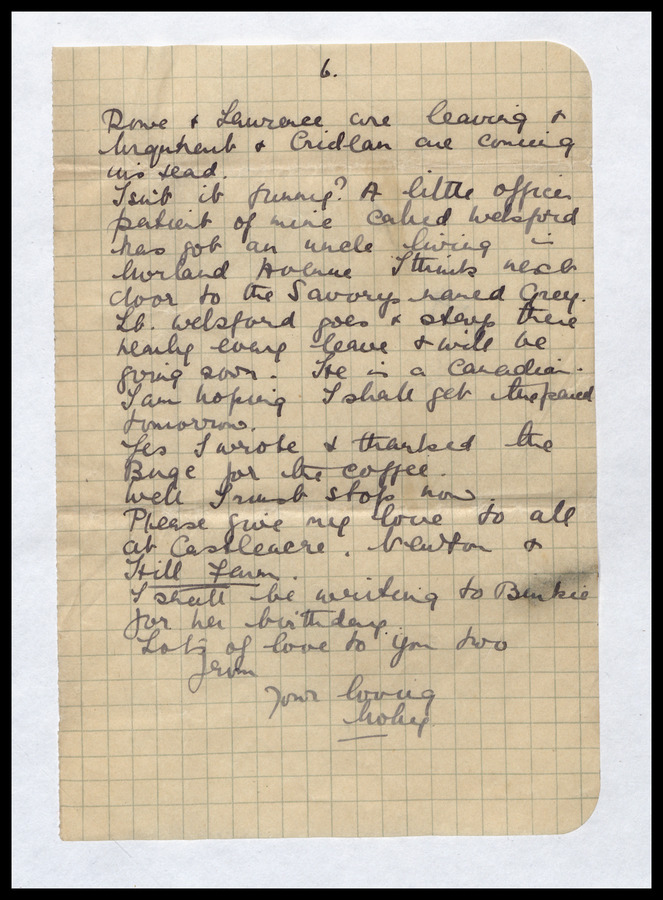 6.
Rowe & Lawrence are leaving &
Urquhart & Cridlan are coming
instead.
Isn't it funny? A little officer
patient of mine called Welsford
has got an uncle living in
Morland Avenue I think next
door to the Savorys named Grey.
Lt. Welsford goes & stays there
nearly every leave & will be
going soon. He is a Canadian.
I am hoping I shall get the parcel
tomorrow.
Yes I wrote & thanked the
for the coffee.
Well I must stop now.
Please give my love to all
at Castleacre, Newton &
Hill Farm.
I shall be writing to Binkie
for her birthday.
Lots of love to you two
from
Your loving